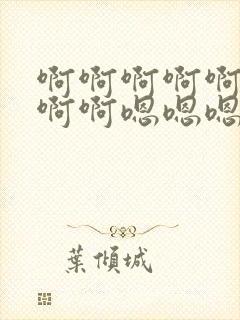 啊啊啊啊啊
啊啊嗯嗯嗯
葉傾城